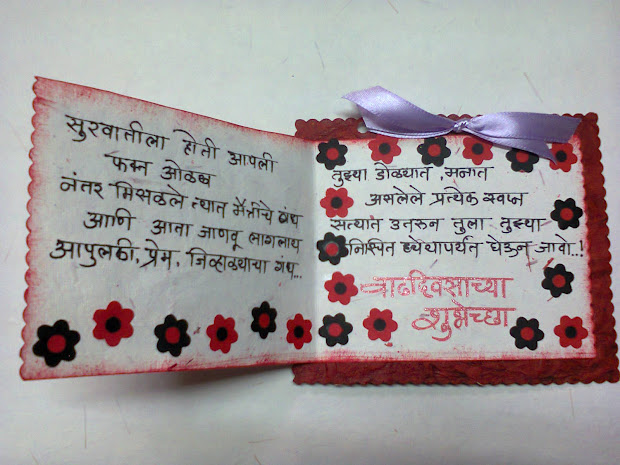 सुरवातीला होती आपली
फक्त ओळख
नंतर मिसळले त्यात मैत्रीचे रंग
आणि आता जाणवू लागलाय
आपुलकी, प्रेम, जिव्हाळ्याचा गंध...
तुझ्या डोळ्यात, मनात
असलेले प्रत्येक स्वप्न
सत्यात उतरून तुला तुझ्या
निश्चित ध्येयापर्यंत घेऊन जावो..!
वाढदिवसाच्या
शुभेच्छा